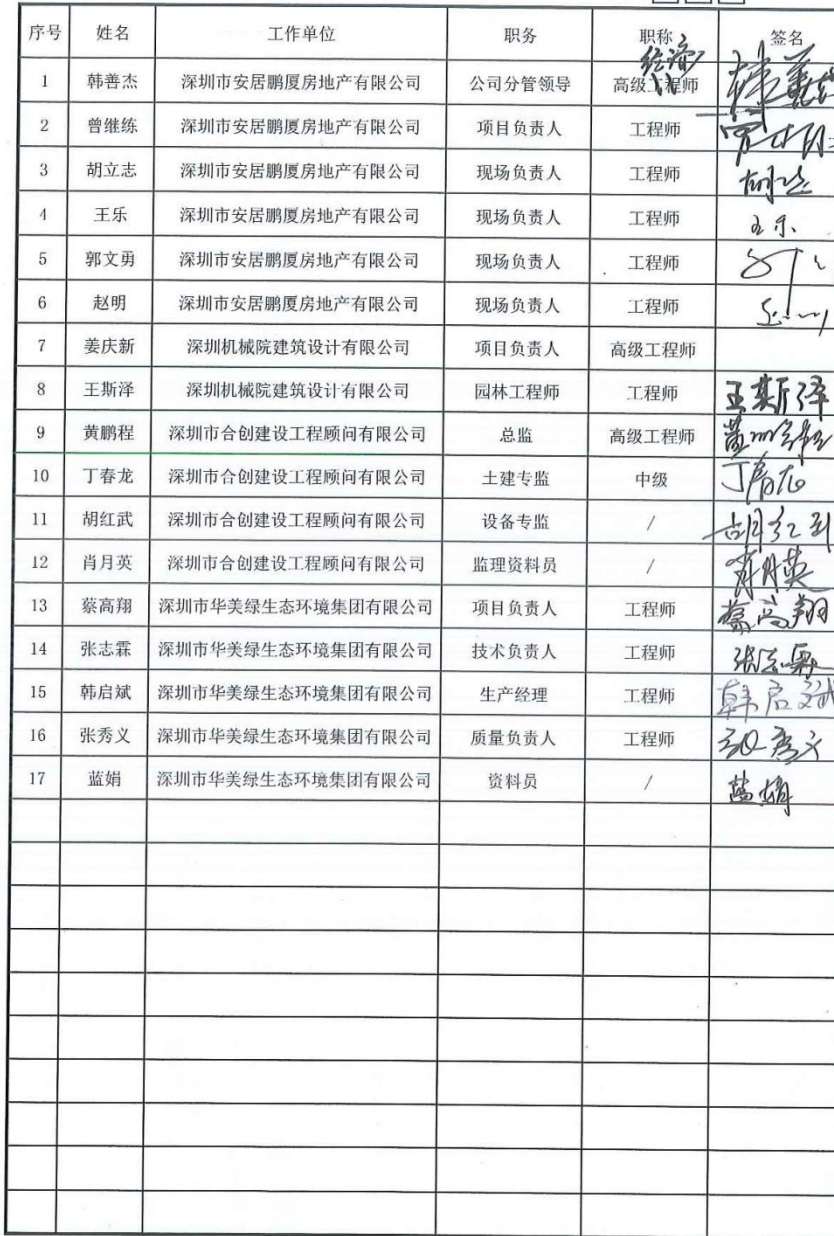 序号 姓名 工作单位 职务 职称 签名
经济
1 韩善杰 深圳市安居鹏厦房地产有限公司 公司分管领导 高级工程师
2 曾继练 深圳市安居鹏厦房地产有限公司 项目负责人 工程师
3 胡立志 深圳市安居鹏厦房地产有限公司 现场负责人 工程师
4 王乐 深圳市安居鹏厦房地产有限公司 现场负责人 工程师 王乐
5 郭文勇 深圳市安居鹏厦房地产有限公司 现场负责人 工程师
6 赵明 深圳市安居鹏厦房地产有限公司 现场负责人 工程师
7 姜庆新 深圳机械院建筑设计有限公司 项目负责人 高级工程师
8 王斯泽 深圳机械院建筑设计有限公司 园林工程师 工程师 王斯泽
9 黄鹏程 深圳市合创建设工程顾问有限公司 总监 高级工程师 黄鹏程
10 丁春龙 深圳市合创建设工程顾问有限公司 土建专监 中级 丁春龙
11 胡红武 深圳市合创建设工程顾问有限公司 设备专监 / 胡红武
12 肖月英 深圳市合创建设工程顾问有限公司 监理资料员 / 肖月英
13 蔡高翔 深圳市华美绿生态环境集团有限公司 项目负责人 工程师 蔡高翔
14 张志霖 深圳市华美绿生态环境集团有限公司 技术负责人 工程师 张志霖
15 韩启斌 深圳市华美绿生态环境集团有限公司 生产经理 工程师 韩启斌
16 张秀义 深圳市华美绿生态环境集团有限公司 质量负责人 工程师 张秀义
17 蓝娟 深圳市华美绿生态环境集团有限公司 资料员 / 蓝娟